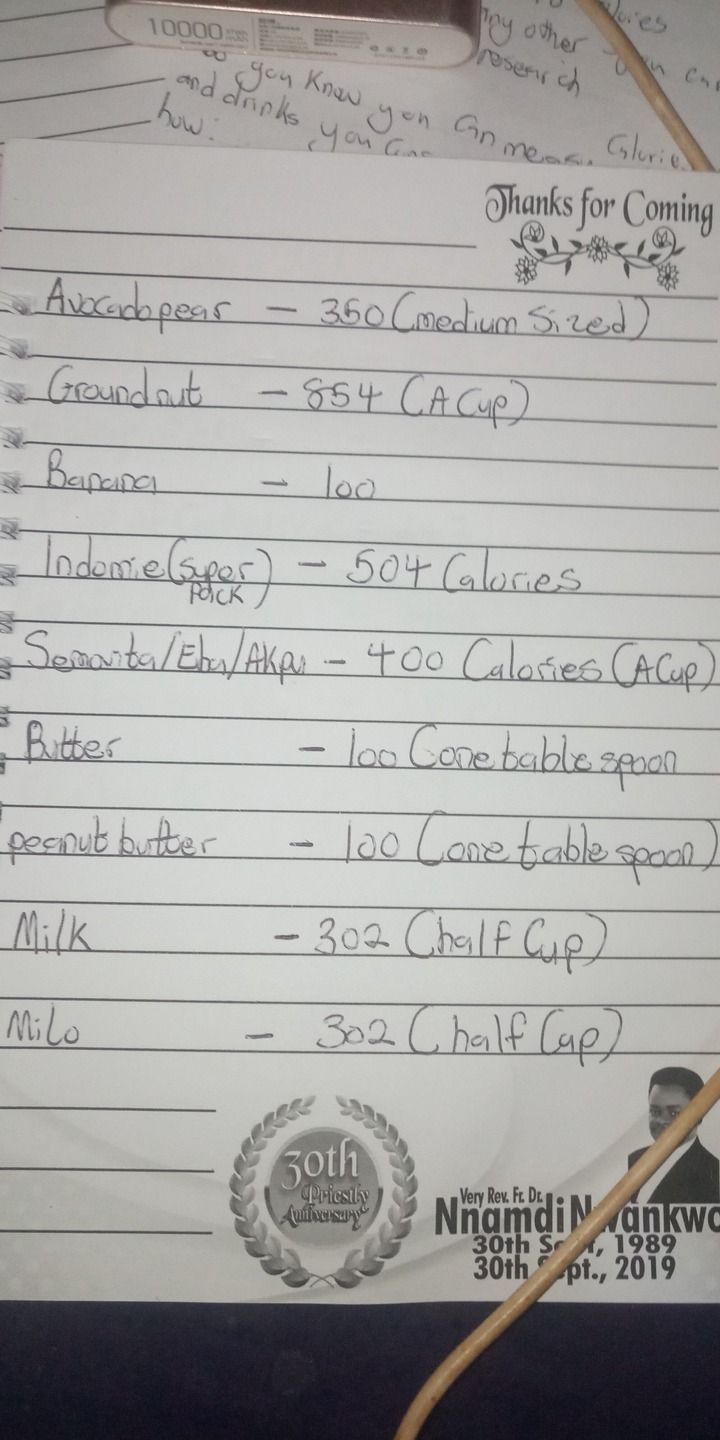 10000
any other
research
you know you can
and drinks you
how:
Thanks for Coming
Avocado pear - 350 (medium Sized)
Groundnut - 854 (A Cup)
Banana - 100
Indomie (super pack) - 504 Calories
Semovita/Eba/Akpu - 400 Calories (A Cup)
Butter - 100 (one table spoon
peanut butter - 100 (one table spoon)
Milk - 302 (half Cup)
Milo - 302 (half Cup)
30th
Priestly
Anniversary
Very Rev. Fr. Dr.
Nnamdi
30th 1989
30th 2019